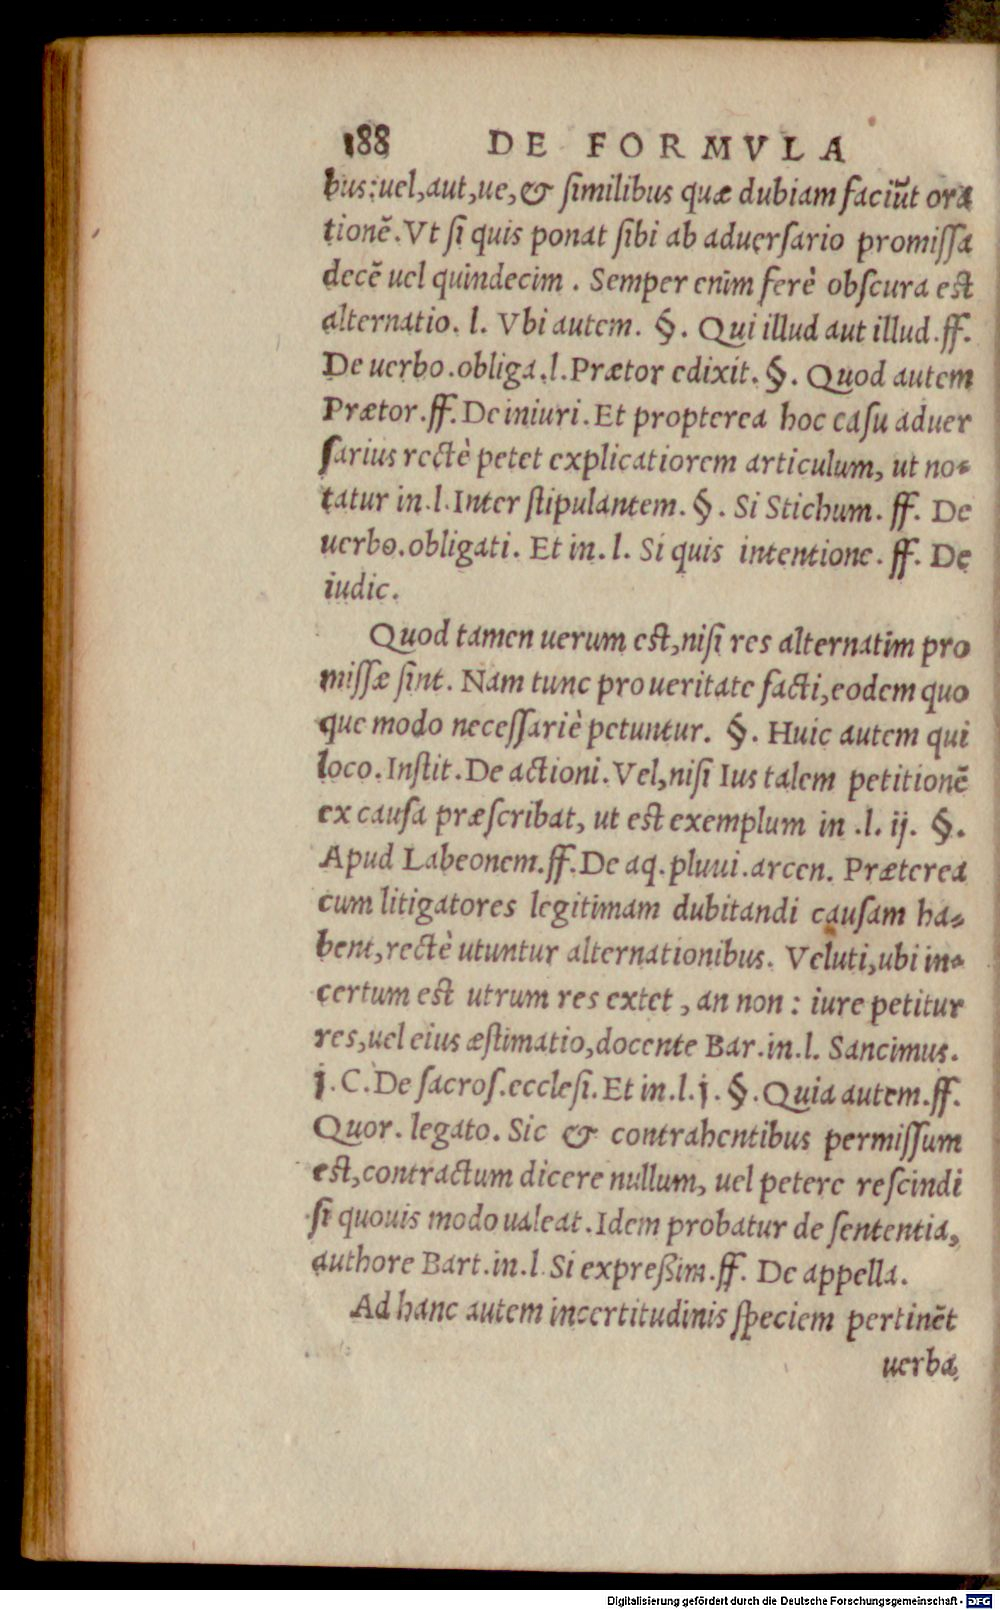 188 DE FORMVLA
bus: uel, aut, ue, & ſimilibus quæ dubiam faciūt ora
tionē. Vt ſi quis ponat ſibi ab aduerſario promiſſa
decē uel quindecim. Semper enim ferè obſcura est
alternatio. l. Vbi autem. §. Qui illud aut illud. ff.
De uerbo. obliga. l. Prætor edixit. §. Quod autem
Prætor. ff. De iniuri. Et propterea hoc caſu aduer
ſarius rectè petet explicatiorem articulum, ut no-
tatur in. l. Inter ſtipulantem. §. Si Stichum. ff. De
uerbo. obligati. Et in. l. Si quis intentione. ff. De
iudic.
Quod tamen uerum est, niſi res alternatim pro
miſſæ ſint. Nam tunc pro ueritate facti, eodem quo
que modo neceſſariè petuntur. §. Huic autem qui
loco. Inſtit. De actioni. Vel, niſi Ius talem petitionē
ex cauſa præſcribat, ut est exemplum in .l. ij. §.
Apud Labeonem. ff. De aq. pluui. arcen. Præterea
cum litigatores legitimam dubitandi cauſam ha-
bent, rectè utuntur alternationibus. Veluti, ubi in-
certum est utrum res extet, an non: iure petitur
res, uel eius æſtimatio, docente Bar. in. l. Sancimus.
j. C. De ſacroſ. eccleſi. Et in. l. j. §. Quia autem. ff.
Quor. legato. Sic & contrahentibus permiſſum
est, contractum dicere nullum, uel petere reſcindi
ſi quouis modo ualeat. Idem probatur de ſententia,
authore Bart. in. l. Si expreßim. ff. De appella.
Ad hanc autem incertitudinis ſpeciem pertinēt
uerba
Digitalisierung gefördert durch die Deutsche Forschungsgemeinschaft - DFG